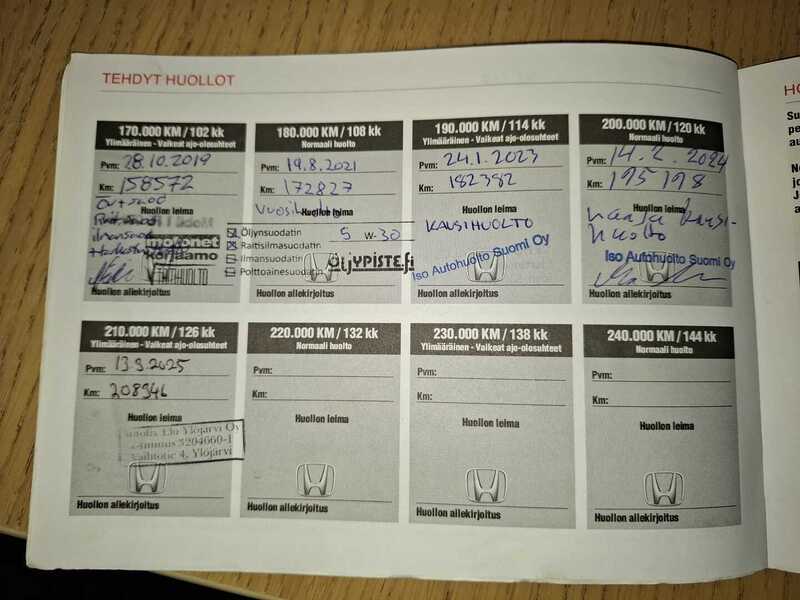 TEHDYT HUOLLOT
170.000 KM / 102 kk
Ylimääräinen - Vaikeat ajo-olosuhteet
Pvm: 28.10.2019
Km: 158572
Huollon leima
motonet
korjaamo
Huollon allekirjoitus
180.000 KM / 108 kk
Normaali huolto
Pvm: 19.8.2021
Km: 172827
Huollon leima
Vuosihuolto
Öljynsuodatin 5 W-30
Raitisilmasuodatin
Ilmansuodatin
Polttoainesuodatin
ÖLJYPISTE.fi
Huollon allekirjoitus
190.000 KM / 114 kk
Ylimääräinen - Vaikeat ajo-olosuhteet
Pvm: 24.1.2023
Km: 182382
Huollon leima
KAUSIHUOLTO
Iso Autohuolto Suomi Oy
Huollon allekirjoitus
200.000 KM / 120 kk
Normaali huolto
Pvm: 14.2.2024
Km: 195198
Huollon leima
laaja kausi-
huolto
Iso Autohuolto Suomi Oy
Huollon allekirjoitus
210.000 KM / 126 kk
Ylimääräinen - Vaikeat ajo-olosuhteet
Pvm: 13.3.2025
Km: 208946
Huollon leima
Ylöjärvi Oy
3204660-1
4, Ylöjärvi
Huollon allekirjoitus
220.000 KM / 132 kk
Normaali huolto
Pvm:
Km:
Huollon leima
Huollon allekirjoitus
230.000 KM / 138 kk
Ylimääräinen - Vaikeat ajo-olosuhteet
Pvm:
Km:
Huollon leima
Huollon allekirjoitus
240.000 KM / 144 kk
Normaali huolto
Pvm:
Km:
Huollon leima
Huollon allekirjoitus